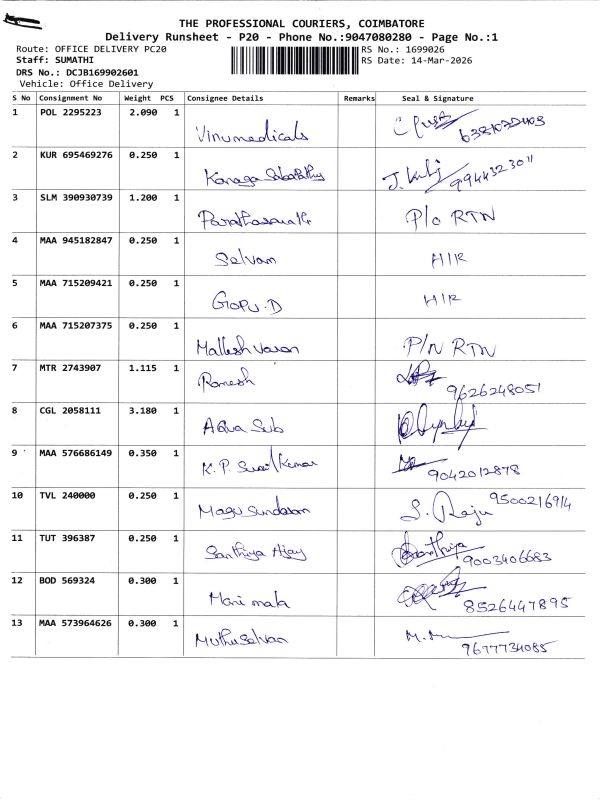 THE PROFESSIONAL COURIERS, COIMBATORE
Delivery Runsheet - P20 - Phone No.:9047080280 - Page No.:1
Route: OFFICE DELIVERY PC20 RS No.: 1699026
Staff: SUMATHI RS Date: 14-Mar-2026
DRS No.: DCJB169902601
Vehicle: Office Delivery
S No Consignment No Weight PCS Consignee Details Remarks Seal & Signature
1 POL 2295223 2.090 1 Vinumedicals
2 KUR 695469276 0.250 1 Kanaga Sabapathy 9944323011
3 SLM 390930739 1.200 1 P/o RTN
4 MAA 945182847 0.250 1 Selvam H/R
5 MAA 715209421 0.250 1 Gopu.D H/R
6 MAA 715207375 0.250 1 P/N RTN
7 MTR 2743907 1.115 1 Ramesh 9626248051
8 CGL 2058111 3.180 1 Aqua Sub
9 MAA 576686149 0.350 1 K.P. Sunil Kumar 9042012878
10 TVL 240000 0.250 1 S. Raju 9500216914
11 TUT 396387 0.250 1 Santhiya Ajay Santhiya 9003406683
12 BOD 569324 0.300 1 8526447895
13 MAA 573964626 0.300 1 Muthuselvan 9677734085